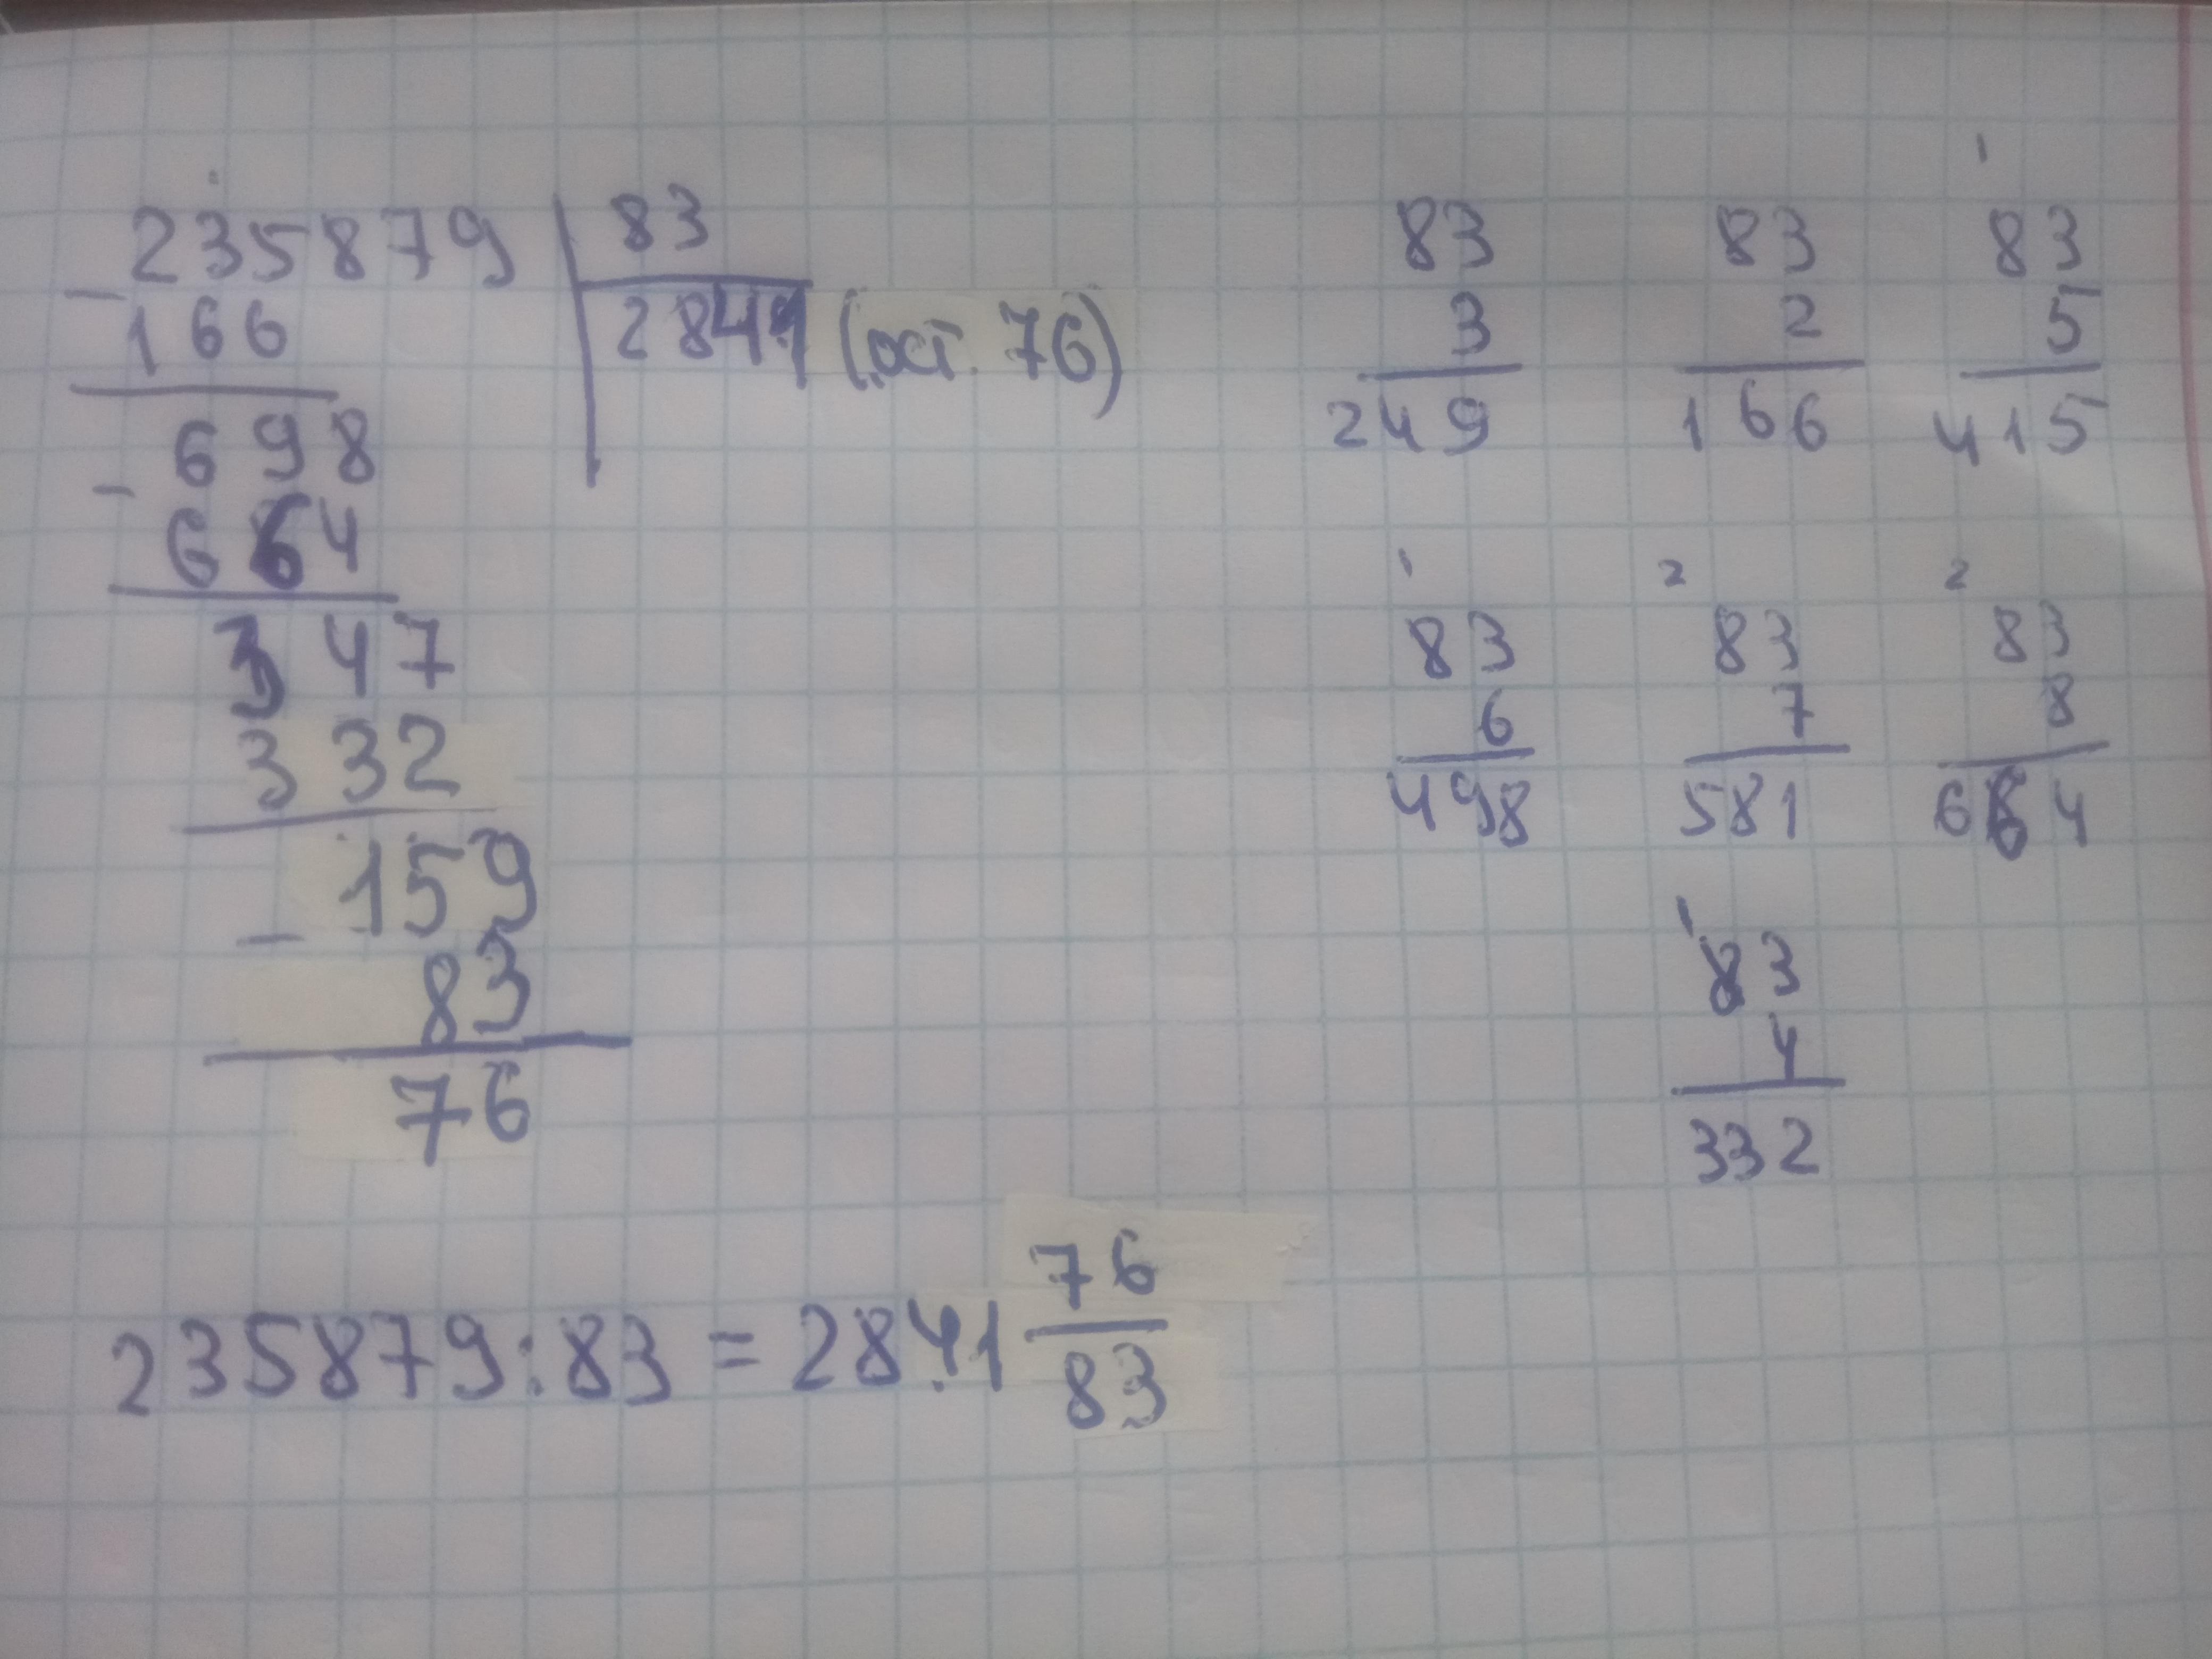 235879 83
- 166 2841 (ост. 76)
698
- 664
347
332
159
- 83
76
83
3
249
83
2
166
1
83
5
415
1
83
6
498
2
83
7
581
2
83
8
664
1
83
4
332
235879:83 = 2841 76/83